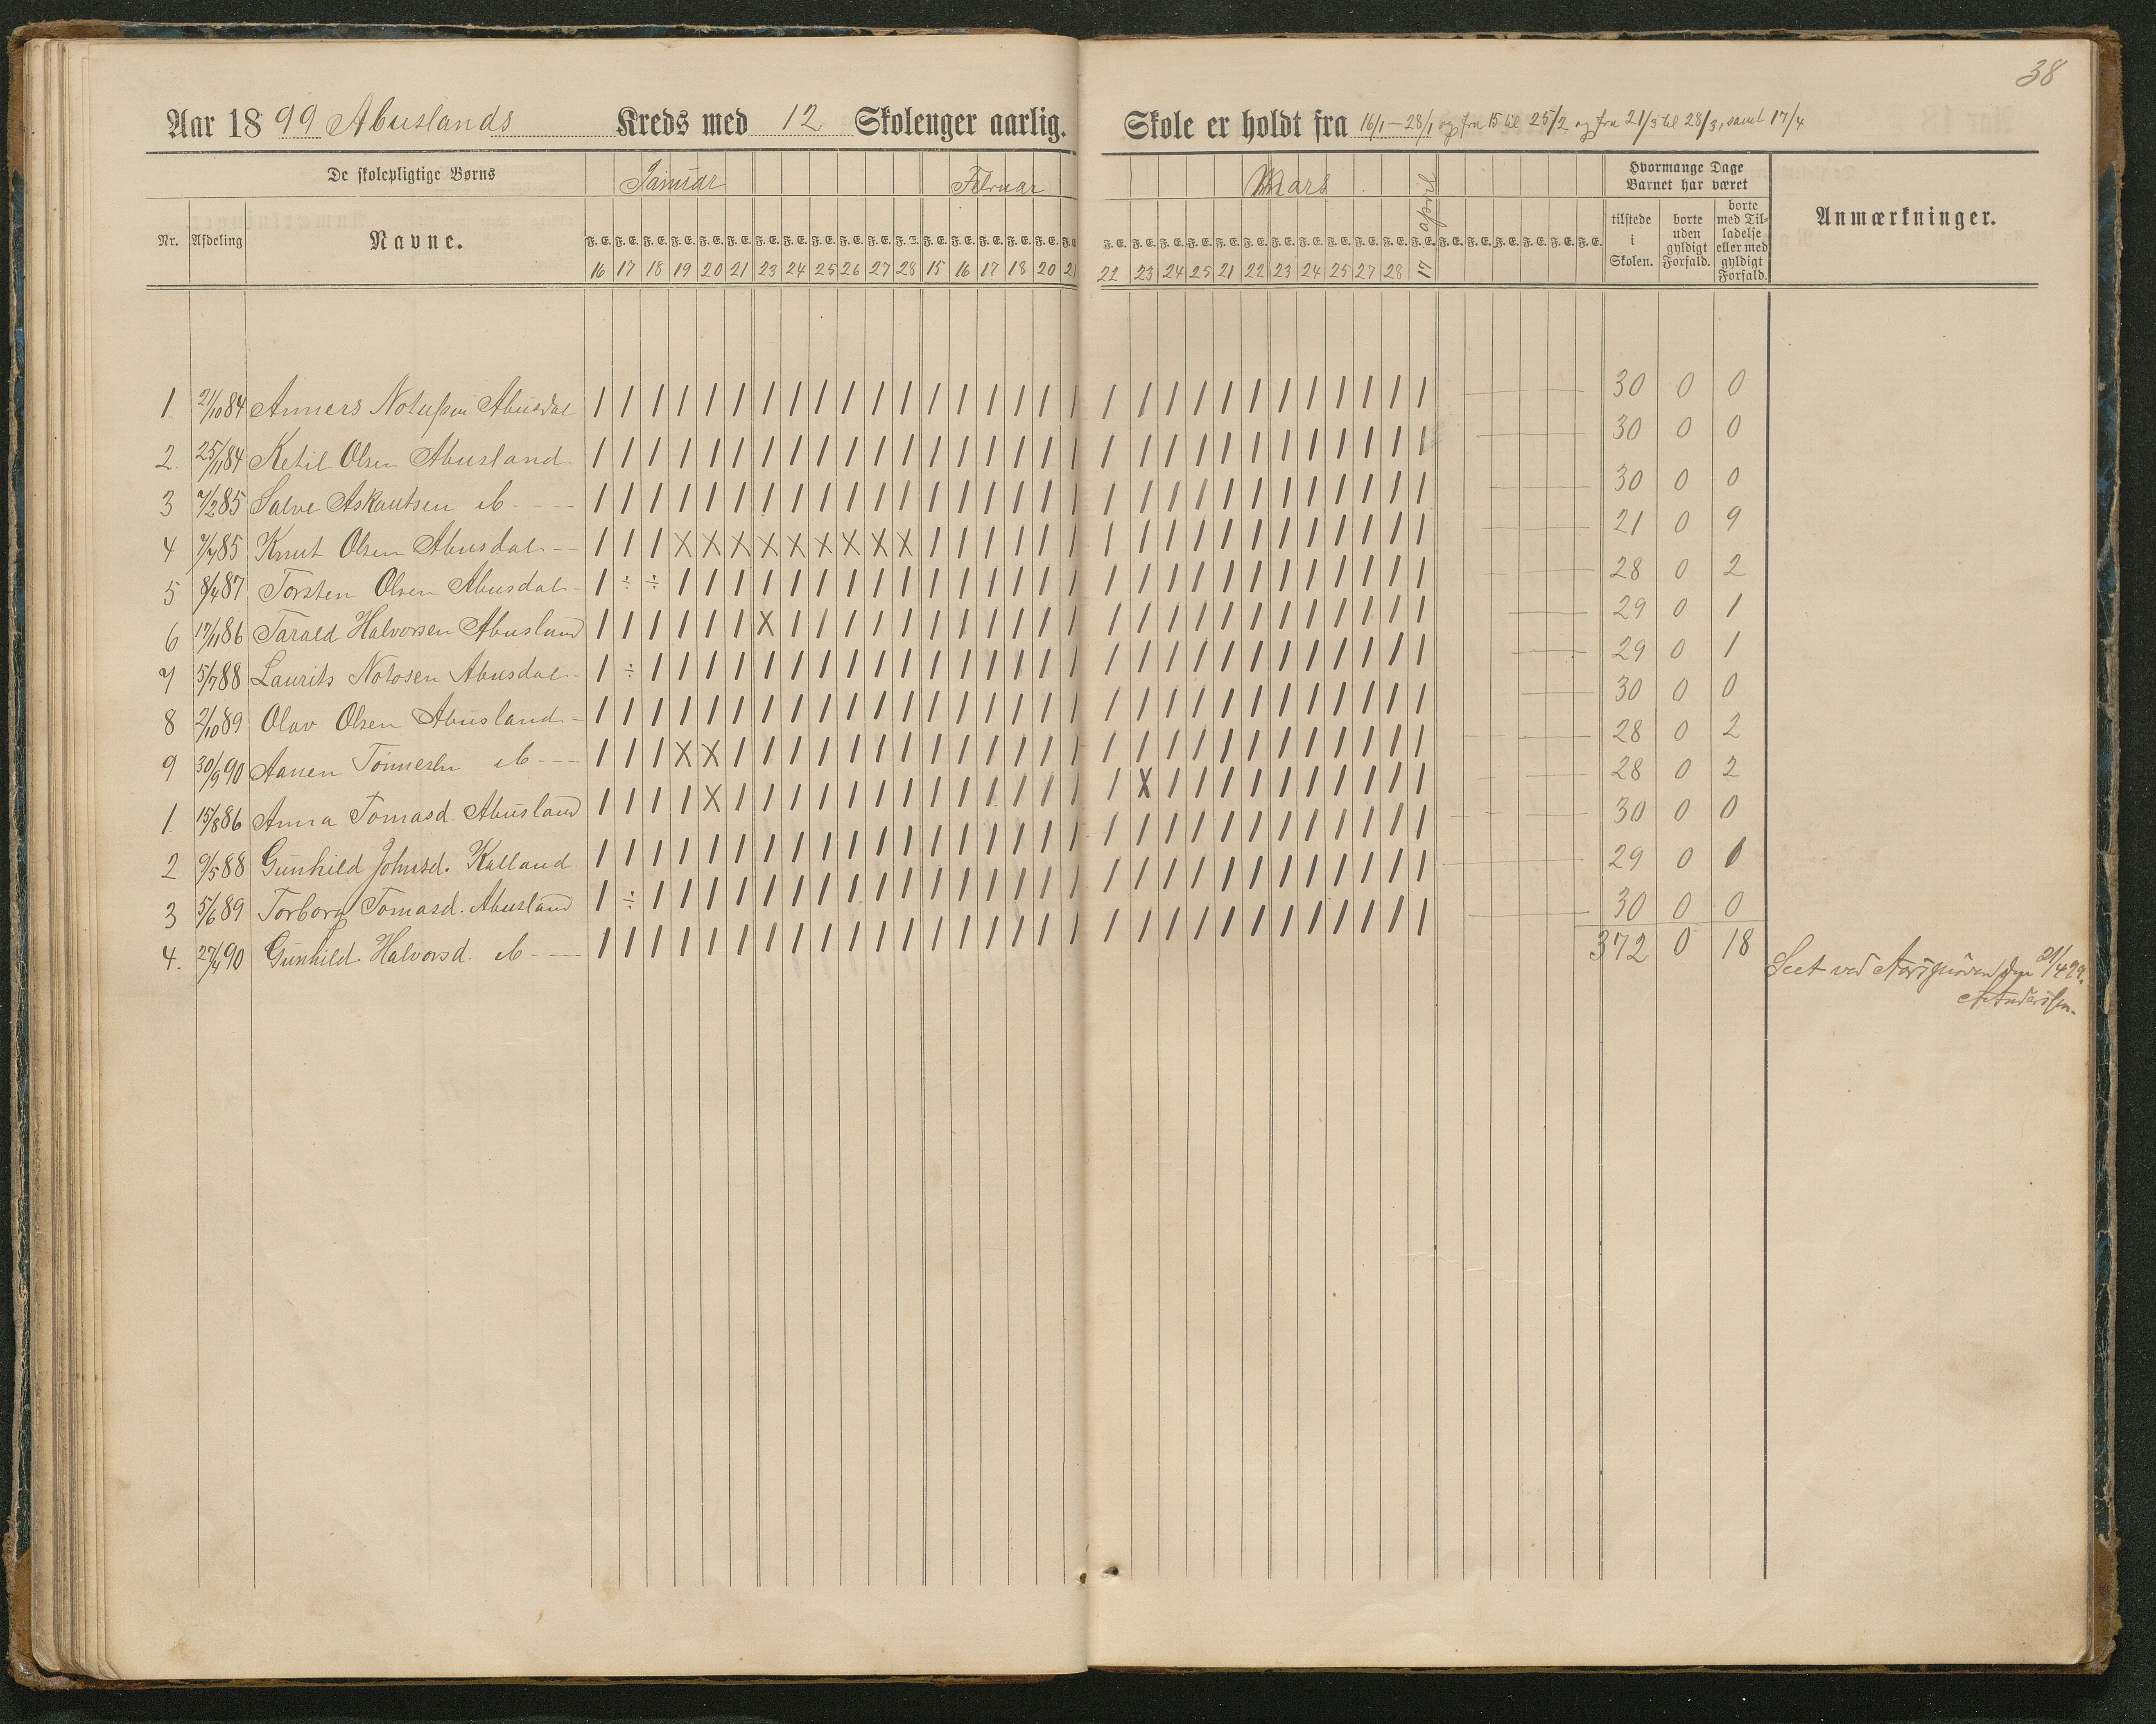 38
Aar 1899 Abuslands Kreds med 12 Skolenger aarlig. Skole er holdt fra 16/1 – 28/1 og fra 15 til 25/2 og fra 21/3 til 28/3, samt 17/4
De skolepligtige Børns Januar Februar Mars april Hvormange Dage Barnet har været
Nr. Afdeling Navne. tilstede i Skolen. borte uden gyldigt Forfald. borte med Tilladelse eller med gyldigt Forfald. Anmærkninger.
F. E. F. E. F. E. F. E. F. E. F. E. F. E. F. E. F. E. F. E. F. E. F. E. F. E. F. E. F. E. F. E. F. E. F. E. F. E. F. E. F. E. F. E. F. E. F. E. F. E. F. E. F. E. F. E. F. E. F. E. F. E. F. E. F. E. F. E. F. E. F. E.
16 17 18 19 20 21 23 24 25 26 27 28 15 16 17 18 20 21 22 23 24 25 21 22 23 24 25 27 28 17
1. 21/10 84 Anners Abusdal | | | | | | | | | | | | | | | | | | | | | | | | | | | | | | 30 0 0
2. 25/11 84 Ketil Olsen Abusland | | | | | | | | | | | | | | | | | | | | | | | | | | | | | | 30 0 0
3 7/2 85 Salve Askautsen ib - - - | | | | | | | | | | | | | | | | | | | | | | | | | | | | | | 30 0 0
4 85 Knut Olsen Abusdal - - | | | X X X X X X X X X | | | | | | | | | | | | | | | | | | 21 0 9
5 8/4 87 Torsten Olsen Abusdal - | ÷ ÷ | | | | | | | | | | | | | | | | | | | | | | | | | | | 28 0 2
6 17/11 86 Tarald Halvorsen Abusland | | | | | | X | | | | | | | | | | | | | | | | | | | | | | | 29 0 1
7 5/7 88 Laurits Notosen Abusdal - | ÷ | | | | | | | | | | | | | | | | | | | | | | | | | | | | 29 0 1
8 2/10 89 Olav Olsen Abusland - | | | | | | | | | | | | | | | | | | | | | | | | | | | | | | 30 0 0
9 30/9 90 Aanen Tönnesen ib - - - | | | X X | | | | | | | | | | | | | | | | | | | | | | | | | 28 0 2
1. 15/8 86 Anna Tomasd. Abusland | | | | X | | | | | | | | | | | | | | X | | | | | | | | | | 28 0 2
2 9/5 88 Gunhild Johnsd. Kalland | | | | | | | | | | | | | | | | | | | | | | | | | | | | | | 30 0 0
3 5/6 89 Torborg Tomasd. Abusland | ÷ | | | | | | | | | | | | | | | | | | | | | | | | | | | | 29 0 1
4. 27/4 90 Gunhild Halvorsd. ib - - | | | | | | | | | | | | | | | | | | | | | | | | | | | | | | 30 0 0
372 0 18
Seet ved Aarsprøven den 21/4 99.